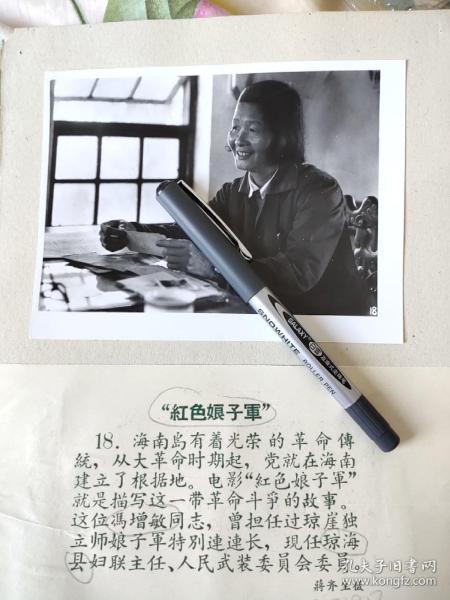 18
GALAXY
SNOWHITE ROLLER PEN
“紅色娘子軍”
18. 海南島有着光荣的革命傳
統，从大革命时期起，党就在海南
建立了根据地。电影“紅色娘子軍”
就是描写这一带革命斗爭的故事。
这位馮增敏同志，曾担任过琼崖独
立师娘子軍特別連連长，現任琼海
县妇联主任、人民武装委員会委員。
蔣齐生攝
孔夫子旧书网